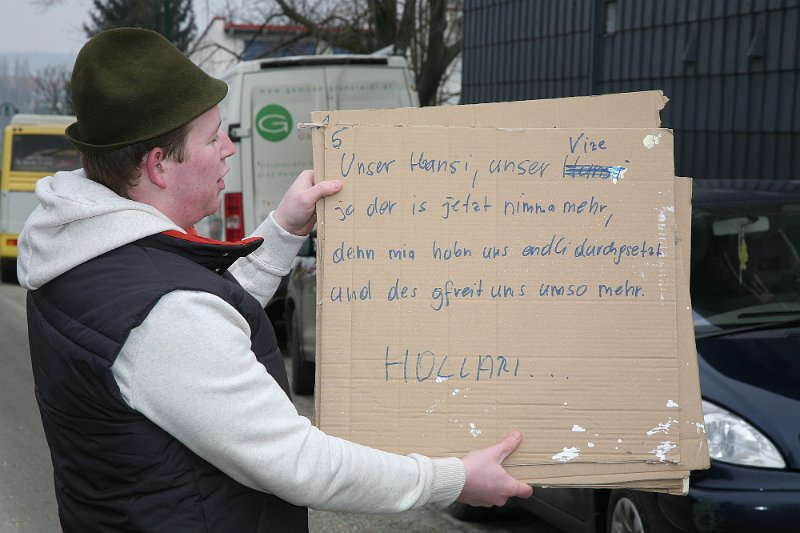 5
Unser Hansi, unser Vize
jo der is jetzt nimma mehr,
denn mia hobn uns endli durchgsetzt
und des gfreit uns umso mehr.
HOLLARI...
G